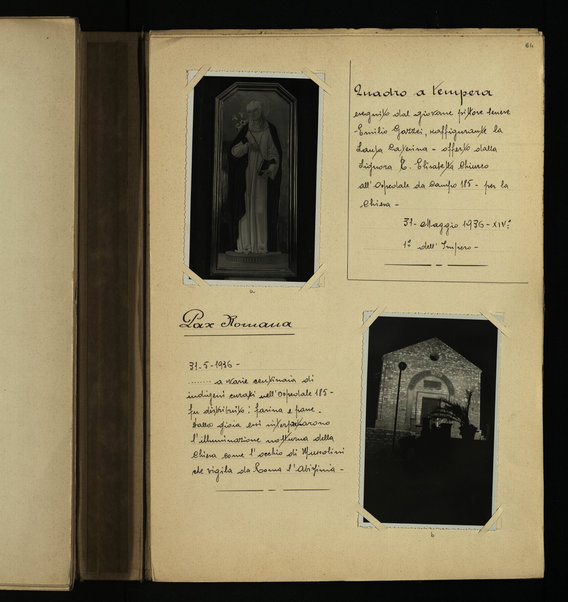 64
Quadro a tempera
eseguito dal giovane pittore senese
Emilio Gazzei, raffigurante la
Santa Caterina - offerto dalla
Signora E. Elisabetta Chiurco
all'Ospedale da Campo 185 - per la
Chiesa -
31 - Maggio 1936 - XIV°
1° dell'Impero -
a
Pax Romana
31-5-1936 -
....... a varie centinaia di
indigeni curati nell'Ospedale 185 -
fu distribuito: farina e pane -
Dalla gioia essi interpretarono
l'illuminazione notturna della
Chiesa come l'occhio di Mussolini
che vigila da Roma l'Abissinia -
b